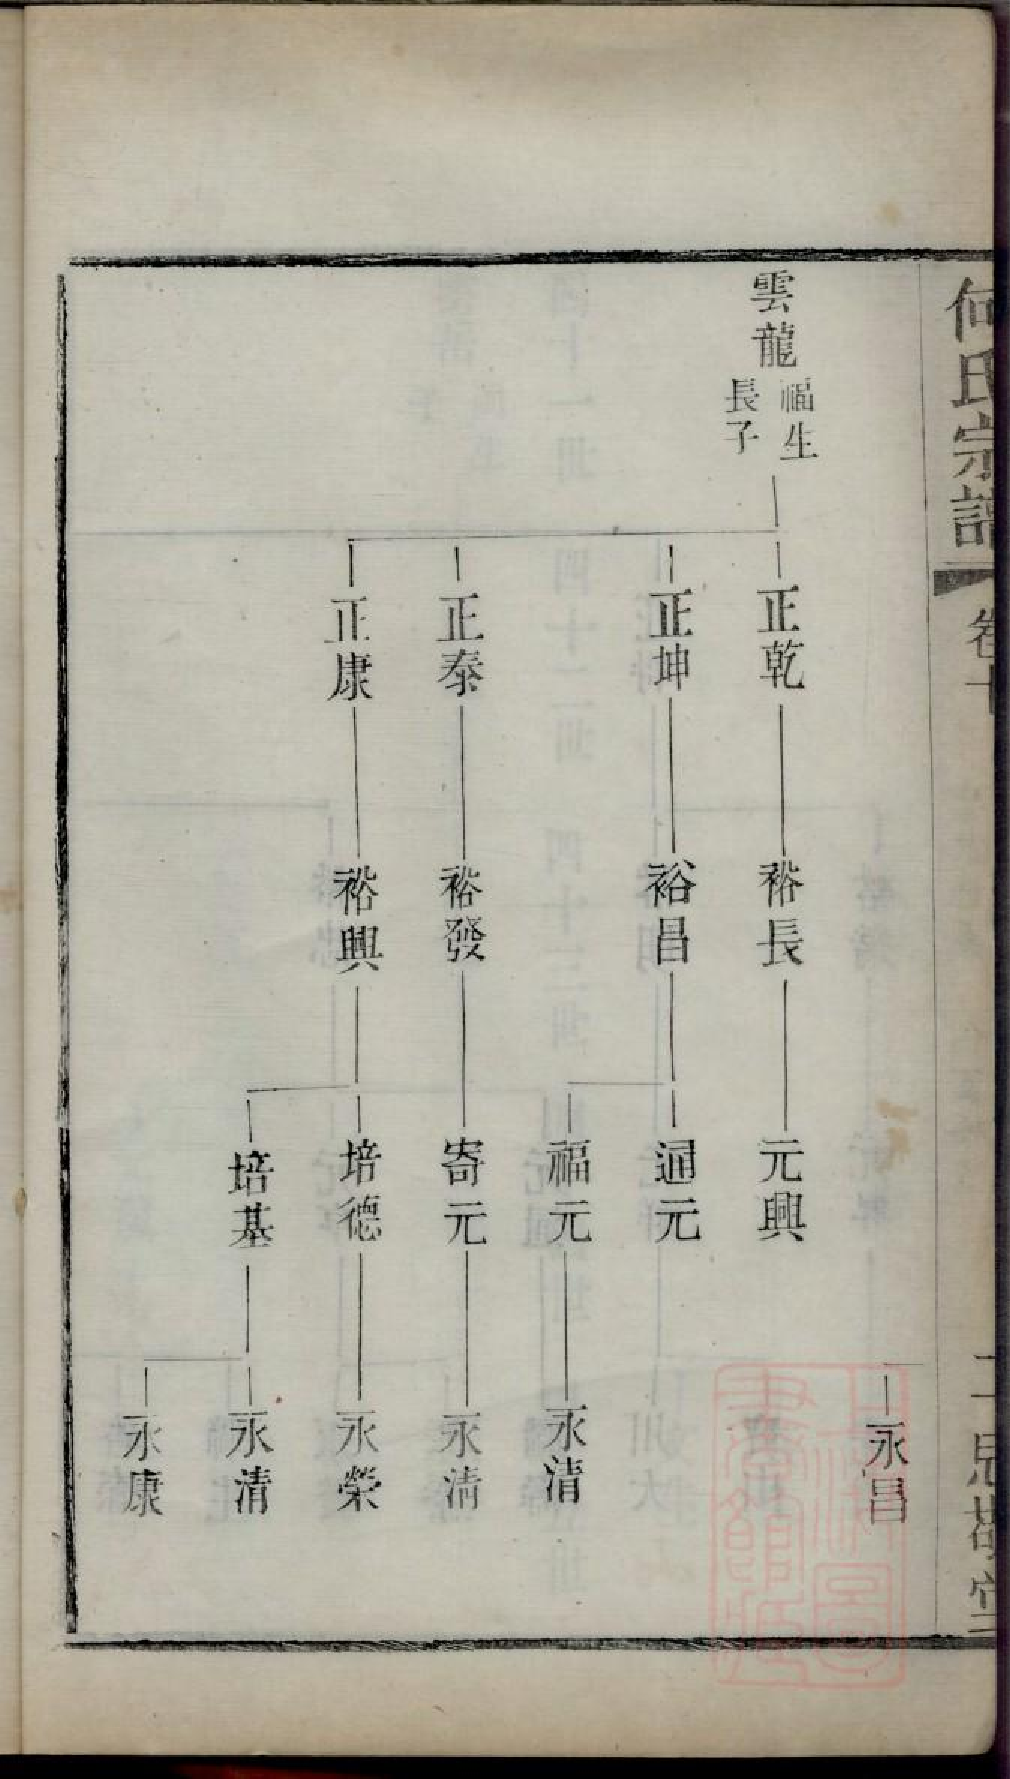 何氏宗譜
雲龍
福生
長子
正乾
正坤
正泰
正康
裕長
裕昌
裕發
裕興
元興
通元
福元
寄元
培德
培基
永昌
永清
永清
永榮
永清
永康